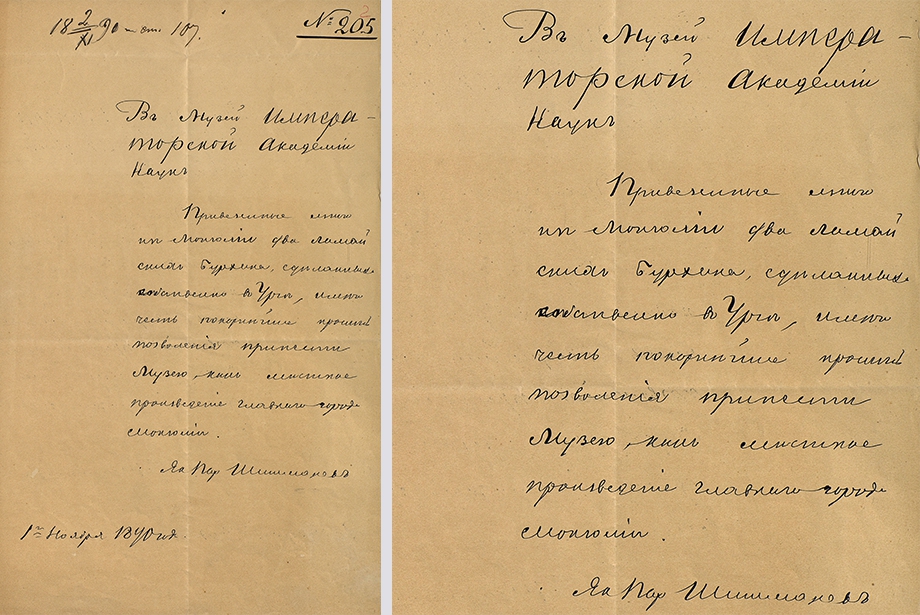 18 2/XI 90 – от. 107.
№ 205
Въ Музей Импера-
торской Академіи
Наукъ
Привезенные мною
изъ Монголіи два Ламай
скихъ Бурхана, сдѣланныхъ
собственно въ Ургѣ, имѣю
честь покорнѣйше просить
позволенія принести
Музею, какъ мѣстное
произведеніе главнаго города
Монголіи.
Як Пар Шишмаревъ
1го Ноября 1890 год.
Въ Музей Импера-
торской Академіи
Наукъ
Привезенные мною
изъ Монголіи два Ламай
скихъ Бурхана, сдѣланныхъ
собственно въ Ургѣ, имѣю
честь покорнѣйше просить
позволенія принести
Музею, какъ мѣстное
произведеніе главнаго города
Монголіи.
Як Пар Шишмаревъ